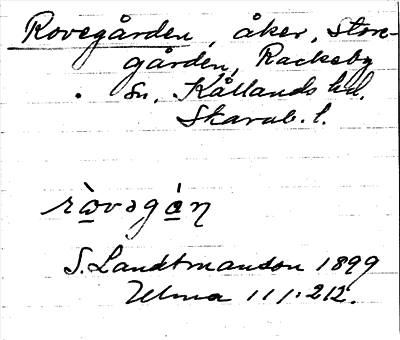 Rovegården, åker, Store-
gården, Rackeby
sn, Kållands hd.
Skarab. l.
ràvəgán
S. Landtmanson 1899
Ulma 111:212.